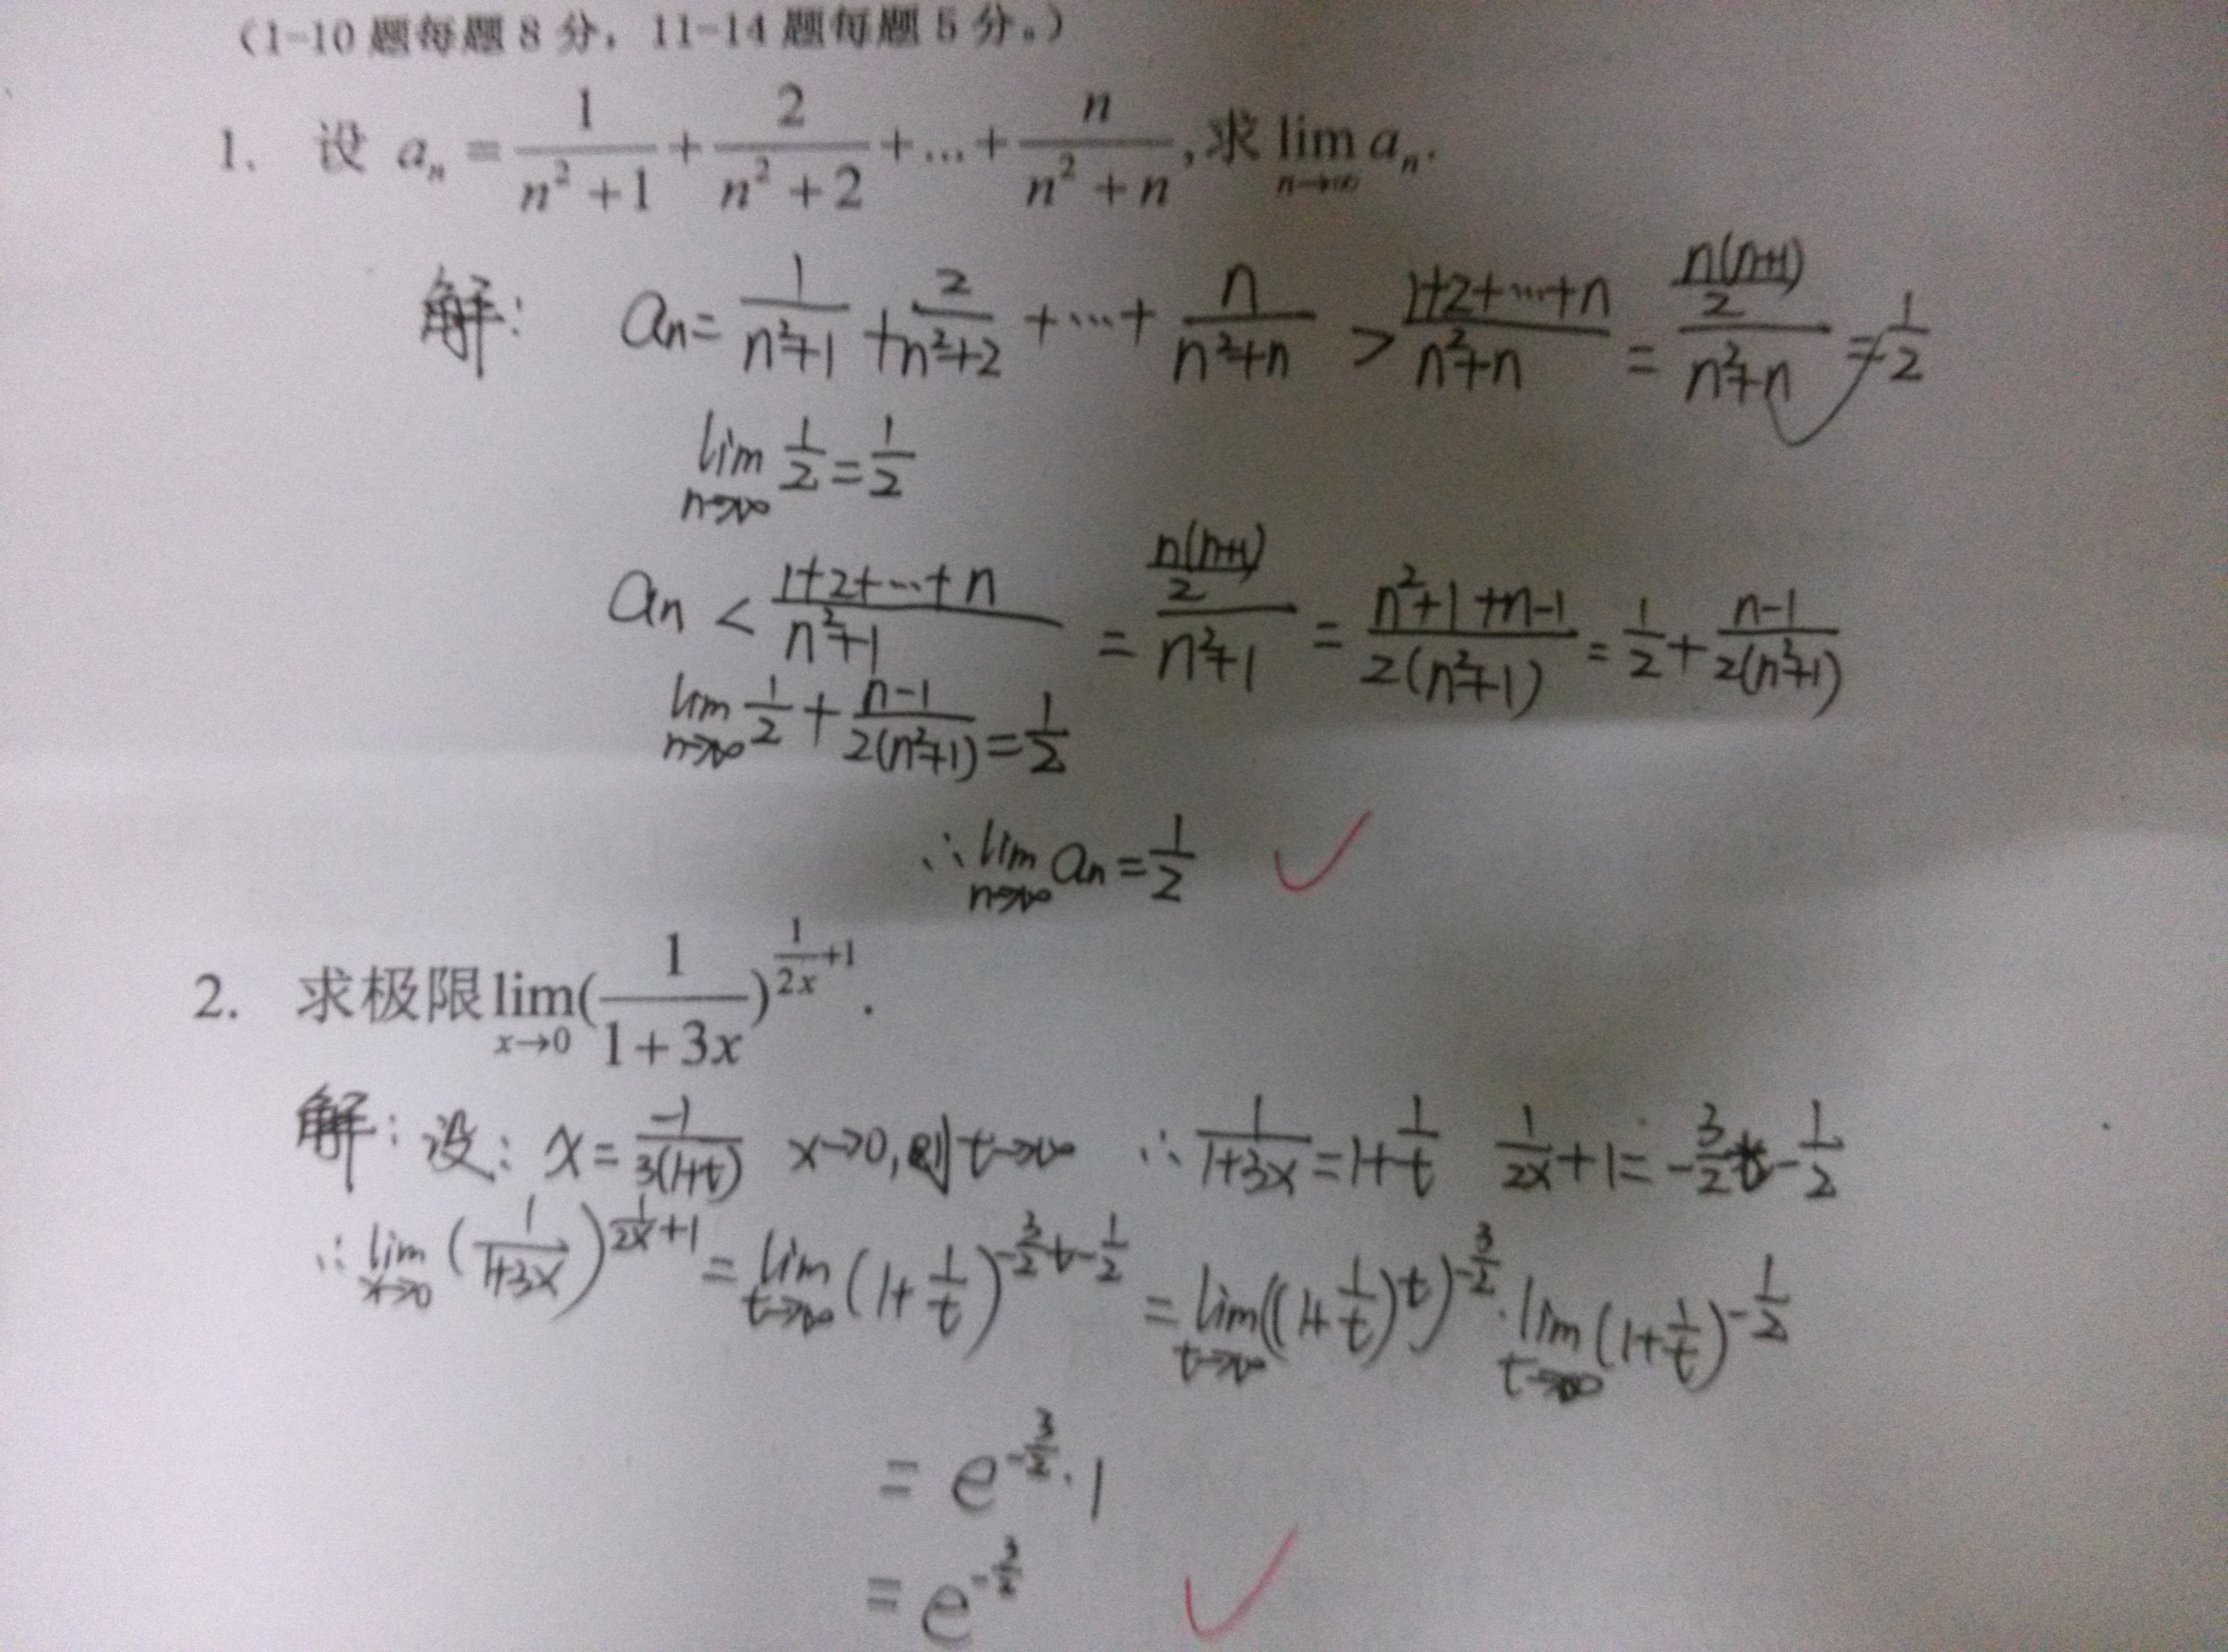 (1-10题每题8分，11-14题每题5分。)
1. 设 aₙ = 1/(n²+1) + 2/(n²+2) + ... + n/(n²+n), 求 lim_{n→∞} aₙ.
解: aₙ = 1/(n²+1) + 2/(n²+2) + ... + n/(n²+n) > (1+2+...+n)/(n²+n) = (n(n+1)/2)/(n²+n) = 1/2
lim_{n→∞} 1/2 = 1/2
aₙ < (1+2+...+n)/(n²+1) = (n(n+1)/2)/(n²+1) = (n²+1+n-1)/(2(n²+1)) = 1/2 + (n-1)/(2(n²+1))
lim_{n→∞} 1/2 + (n-1)/(2(n²+1)) = 1/2
∴ lim_{n→∞} aₙ = 1/2 ✓
2. 求极限 lim_{x→0} (1/(1+3x))^{1/(2x)+1}.
解: 设: x = -1/(3(1+t)) x→0, 则 t→∞ ∴ 1/(1+3x) = 1+1/t 1/(2x)+1 = -3/2 t - 1/2
∴ lim_{x→0} (1/(1+3x))^{1/(2x)+1} = lim_{t→∞} (1+1/t)^{-3/2 t - 1/2} = lim_{t→∞} ((1+1/t)^t)^{-3/2} · lim_{t→∞} (1+1/t)^{-1/2}
= e^{-3/2} · 1
= e^{-3/2} ✓